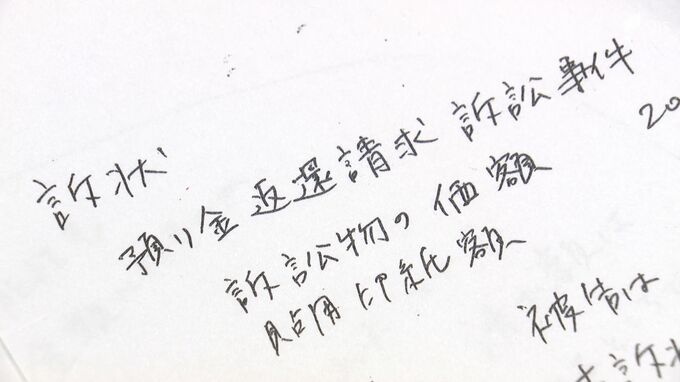 訴状
預り金返還請求訴訟事件
20
訴訟物の価額
貼用印紙額
被告は
訴状